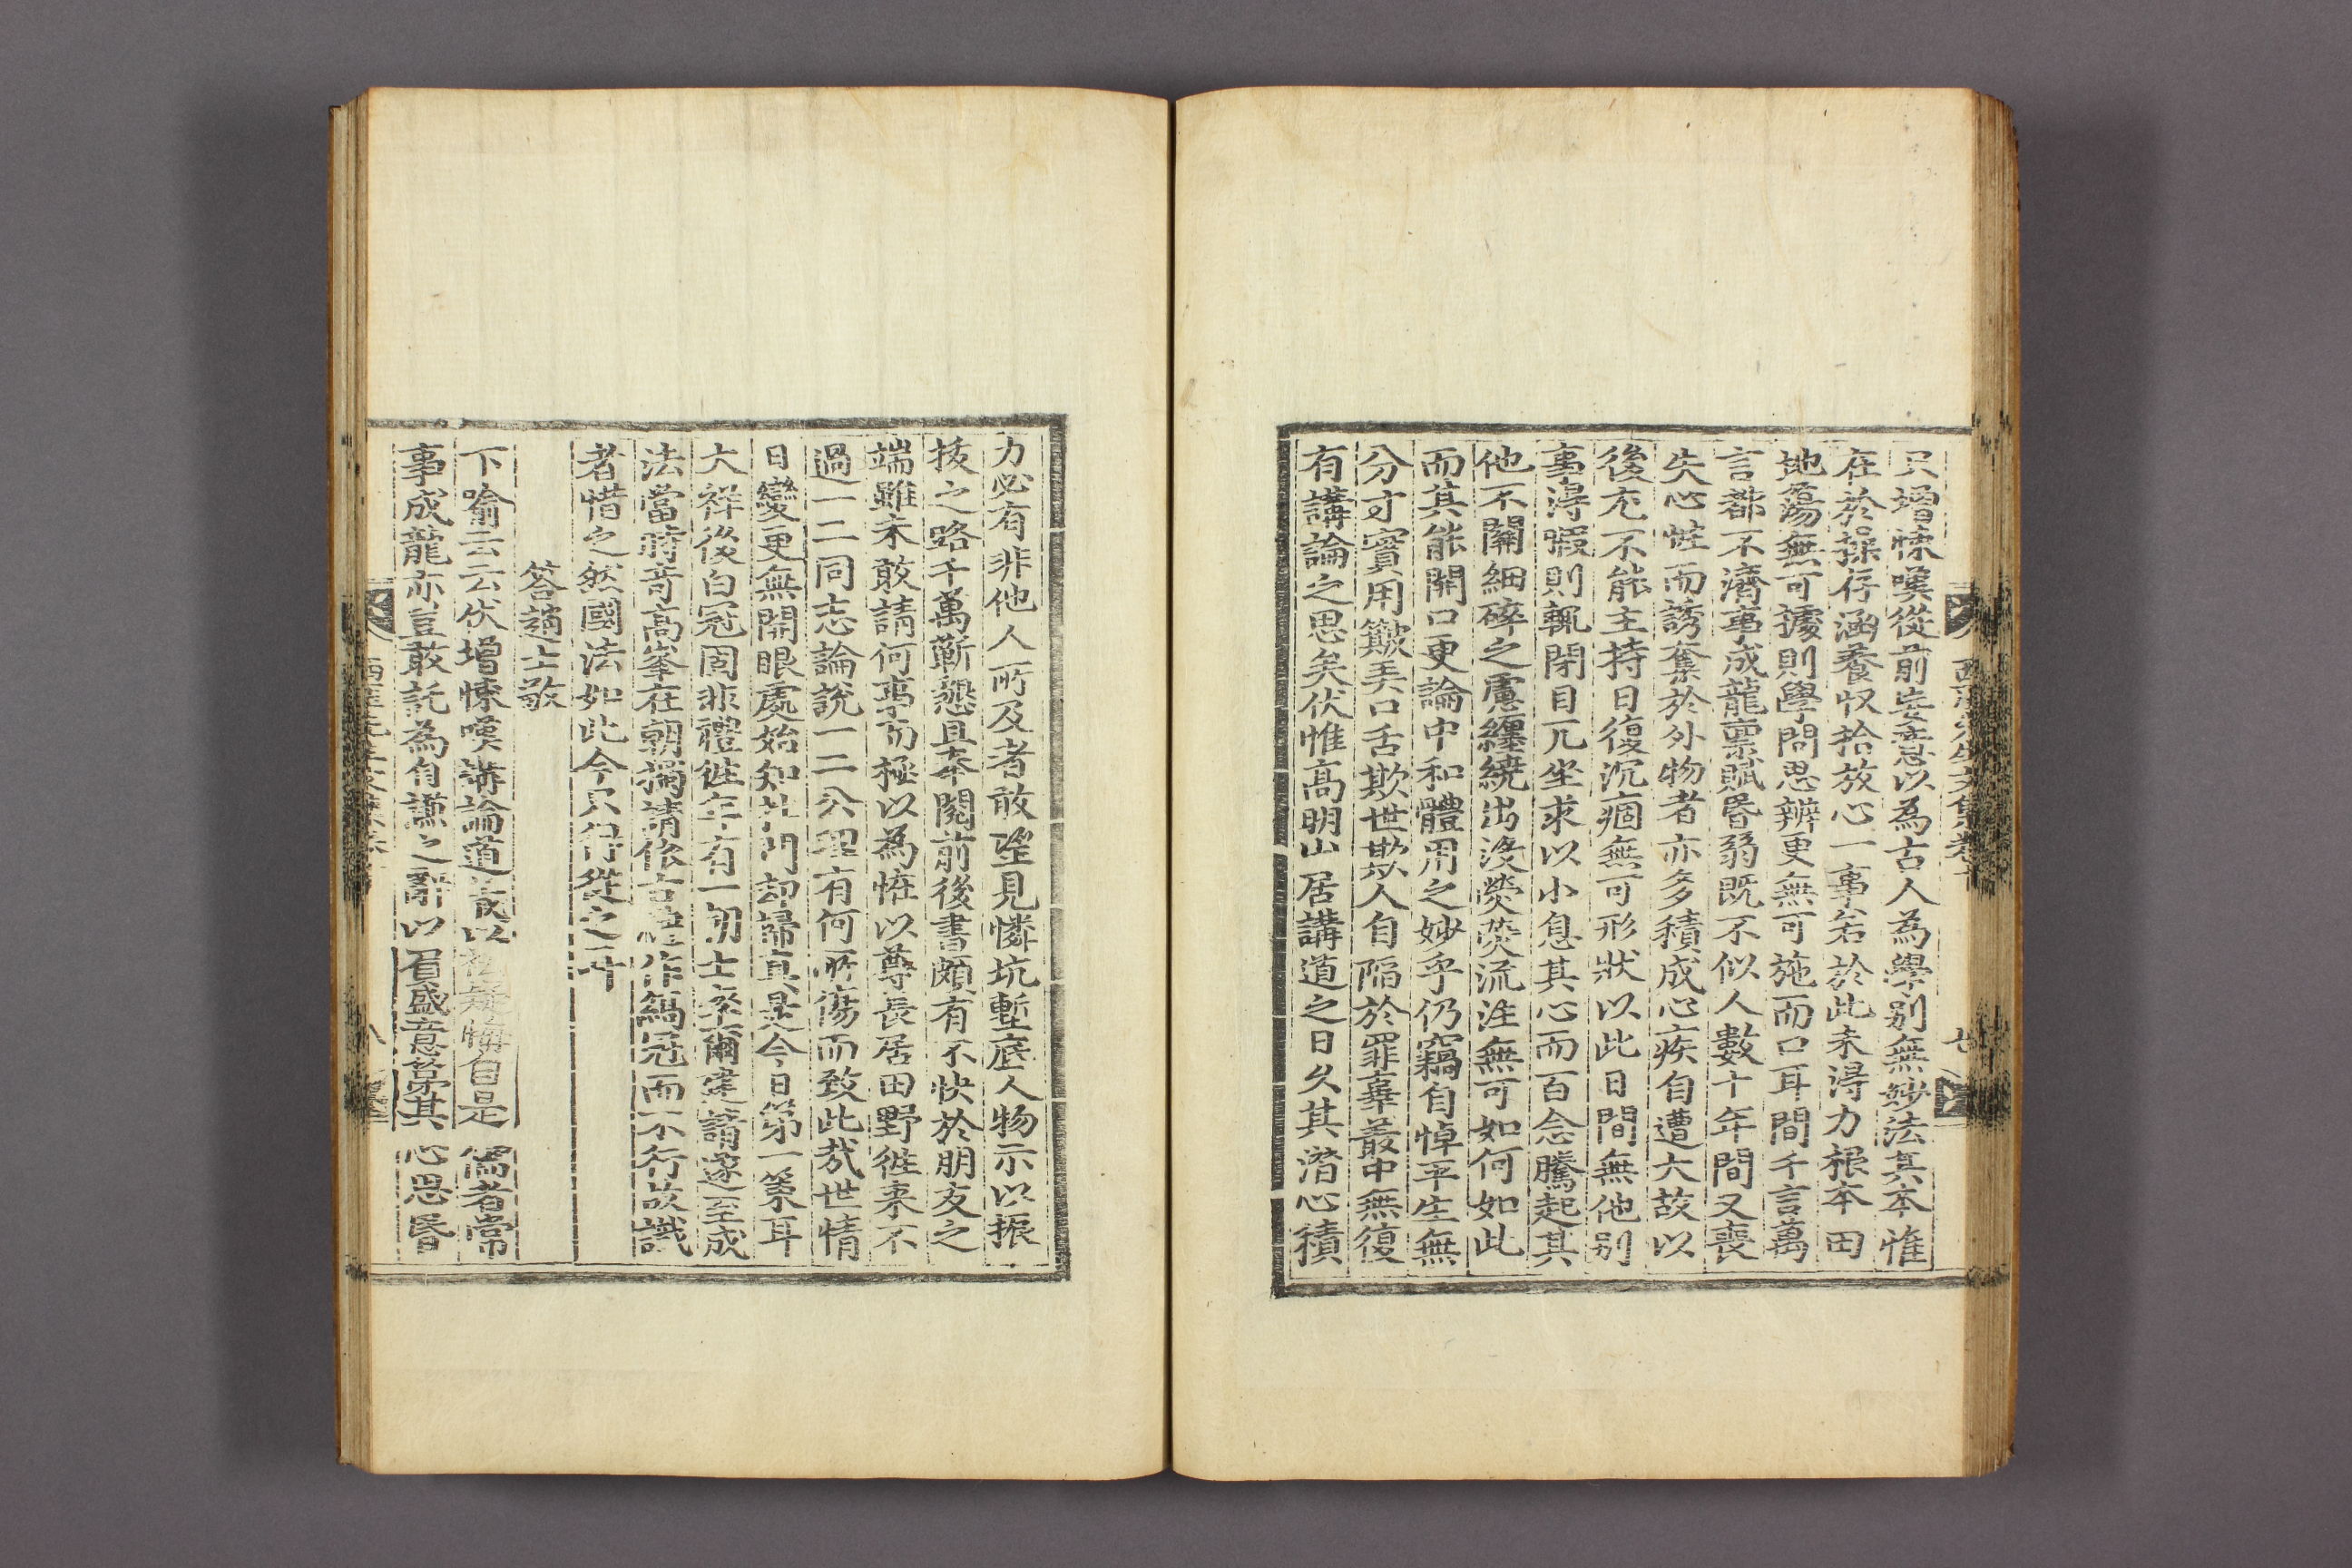 只增悚嘆從前妄意以為古人為學别無妙法其本惟
在於操存涵養収拾放心一事若於此未淂力根本田
地蕩無可據則學問思辨更無可施而口耳間千言萬
言都不濟事成龍禀賦昏弱既不似人數十年間又喪
失心性而誘奪於外物者亦多積成心疾自遭大故以
後尤不能主持日復沉痼無可形狀以此日間無他别
事淂暇則輒閉目兀坐求以小息其心而百念騰起其
他不關細碎之慮纏繞出没熒熒流注無可如何如此
而其能開口更論中和體用之妙乎仍竊自悼平生無
分寸實用簸弄口舌欺世欺人自陷於罪辜叢中無復
有講論之思矣伏惟高明山居講道之日久其潜心積
力必有非他人所及者敢望見憐坑塹底人物示以振
拔之路千萬蘄懇且奉閱前後書頗有不快於朋友之
端雖未敢請何事而極以為恠以尊長居田野徃来不
過一二同志論說一二公理有何所傷而致此㢤世情
日變更無開眼處始知杜門却掃真是今日第一策耳
大祥後白冠固非禮徃年有一朝士率爾建請遂至成
法當時竒高峯在朝獨請依古禮作縞冠而不行故識
者惜之然國法如此今只得從之耳
答趙士敬
下喻云云伏增悚嘆講論道義以
自是
儒者常
事成龍亦豈敢託為自謙之辭以
盛意苐其
心思昏
西厓先生文集卷十
七
八